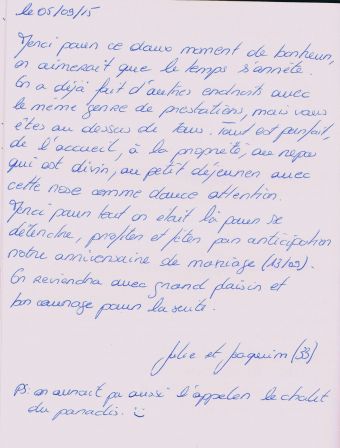 le 05/09/15
Merci pour ce doux moment de bonheur,
on aimerait que le temps s'arrête.
On a déjà fait d'autres endroits avec
le même genre de prestations, mais vous
êtes au dessus de tous. Tout est parfait,
de l'accueil, à la propriété, au repas
qui est divin, au petit déjeuner avec
cette rose comme douce attention.
Merci pour tout on était là pour se
détendre, profiter et fêter par anticipation
notre anniversaire de mariage (13/09).
On reviendra avec grand plaisir et
bon courage pour la suite.
Julie et Joaquim (33)
PS: on aurait pu aussi l'appeler le chalet
du paradis. :)